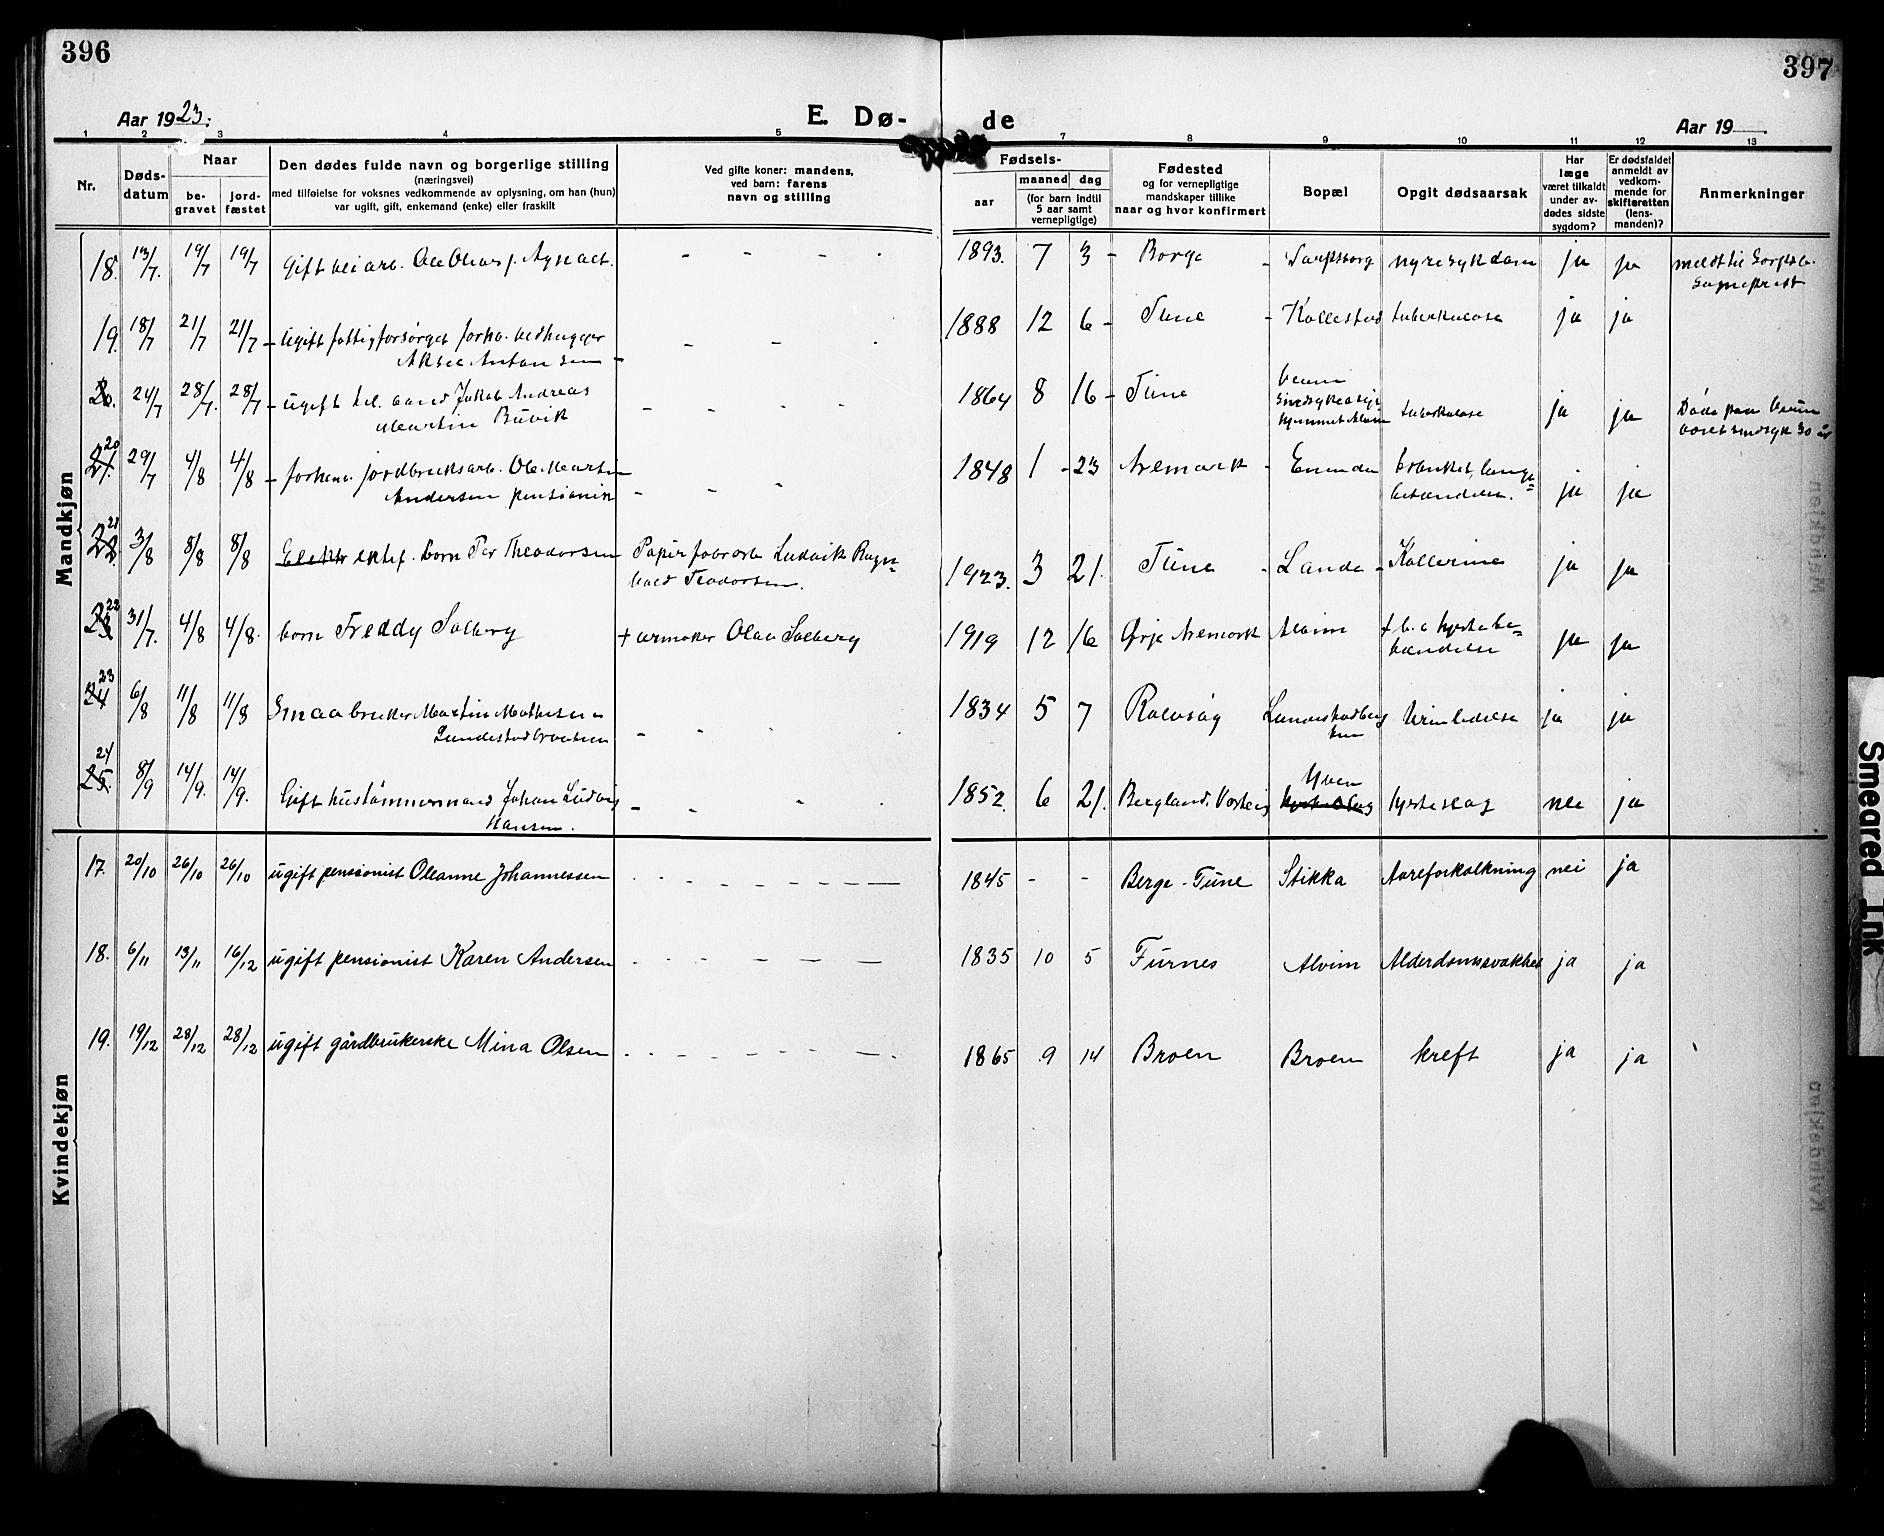 396
397
Aar 1923.
E. Dø-
de
Aar 19
1 2 3 4 5 7 8 9 10 11 12 13
Nr.
Døds-
datum
Naar
be-
gravet
jord-
fæstet
Den dødes fulde navn og borgerlige stilling
(næringsvei)
med tilføielse for voksnes vedkommende av oplysning, om han (hun)
var ugift, gift, enkemand (enke) eller fraskilt
Ved gifte koner: mandens,
ved barn: farens
navn og stilling
Fødsels-
aar
maaned
dag
(for barn indtil
5 aar samt
vernepligtige)
Fødested
og for vernepligtige
mandskaper tillike
naar og hvor konfirmert
Bopæl
Opgit dødsaarsak
Har
læge
været tilkaldt
under av-
dødes sidste
sygdom?
Er dødsfaldet
anmeldt av
vedkom-
mende for
skifteretten
(lens-
manden)?
Anmerkninger
Mandkjøn
18. 13/7. 19/7 19/7 Gift 1893. 7 3 - Borge - Sarpsborg nyresykdom ja ja meldt til Sarpsb.
Sogneprest
19. 18/7 21/7 21/7 - Ugift fattigforsørget forhv. vedhugger 1888 12 6 - Tune - Kallestad tuberkulose ja ja
Aksel Antonsen -
20. 24/7 28/7. 28/7 - ugift Jakob Andreas
Martin Buvik 1864 8 16 - Tune tuberkulose ja ja
20 29/7 4/8 4/8 - forhenv. jordbruksarb. Ole Martin
Andersen pensionist 1848 1 - 23 Aremark - ja ja
21 22. 3/8 8/8 8/8 ektef. barn Per Theodorsen Papirfabrarb Ludvik Ragn=
vald Teodorsen. 1923. 3 21. Tune - Lande - Kollerine ja ja
22 23 31/7. 4/8 4/8. barn Freddy Solberg + urmaker Olav Solberg 1919 12 16 Ørje Aremark Alvim ja ja
23 24 6/8 11/8 11/8 Smaabruker Martin Mathisen 1834 5 7 Rolvsøy Urinledelse ja ja
24 25. 8/9 14/9. 14/9. Gift hustømmermand Johan Ludvig
Hansen. 1852. 6 21. Bergland, Varteig Yven hjerteslag nei ja
Kvindekjøn
17. 20/10 26/10 26/10 ugift pensionist Oleanne Johannessen 1845 - - Berge - Tune Stikka Aareforkalkning nei ja
18. 6/11 13/11 16/12 ugift pensionist Karen Andersen 1835 10 5 Furnes Alvim Alderdomssvakhet ja ja
19. 19/12 28/12 28/12 ugift gårdbrukerske Mina Olsen 1865 9 14 Broen Broen kreft ja ja
Smeared Ink